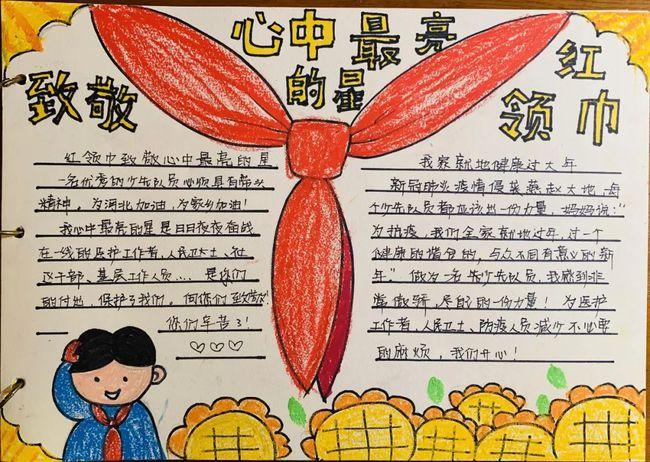 心中最亮
的星
致敬
红
领巾
红领巾致敬心中最亮的星
一名优秀的少先队员必须具有带头
精神。为河北加油,为家乡加油!
我心中最亮的星是日日夜夜奋战
在一线的医护工作者,人民卫士、社
区干部、基层工作人员……是你们
的付出,保护了我们。向你们致敬!
你们辛苦了!
我家就地健康过大年
新冠肺炎疫情侵袭燕赵大地,每
个少先队员都应该出一份力量,妈妈说:“
为抗疫,我们全家就地过年,过一个
健康的谐分的,与众不同有意义的新
年”。做为一名 少先队员,我感到非
常傲骄,尽自己的一份力量!为医护
工作者,人民卫士、防疫人员减少不必要
的麻烦,我们开心!